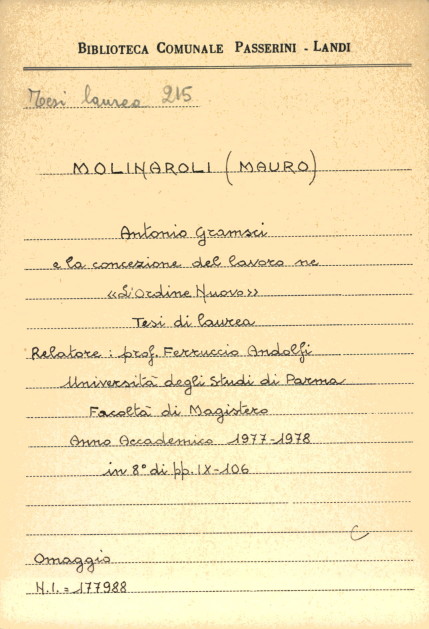 BIBLIOTECA COMUNALE PASSERINI - LANDI
Tesi laurea 215
MOLINAROLI (MAURO)
Antonio Gramsci
e la concezione del lavoro ne
«L'Ordine Nuovo»
Tesi di laurea
Relatore: prof. Ferruccio Andolfi
Università degli Studi di Parma
Facoltà di Magistero
Anno Accademico 1977-1978
in 8° di pp. IX-106
C
Omaggio
N.I. = 177988